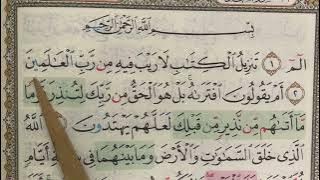 بِسْمِ ٱللَّهِ ٱلرَّحْمَٰنِ ٱلرَّحِيمِ
الٓمٓ ١ تَنزِيلُ ٱلْكِتَٰبِ لَا رَيْبَ فِيهِ مِن رَّبِّ ٱلْعَٰلَمِينَ
٢ أَمْ يَقُولُونَ ٱفْتَرَىٰهُ بَلْ هُوَ ٱلْحَقُّ مِن رَّبِّكَ لِتُنذِرَ قَوْمًا مَّا
أَتَىٰهُم مِّن نَّذِيرٍ مِّن قَبْلِكَ لَعَلَّهُمْ يَهْتَدُونَ ٣ ٱللَّهُ
ٱلَّذِى خَلَقَ ٱلسَّمَٰوَٰتِ وَٱلْأَرْضَ وَمَا بَيْنَهُمَا فِى سِتَّةِ أَيَّامٍ